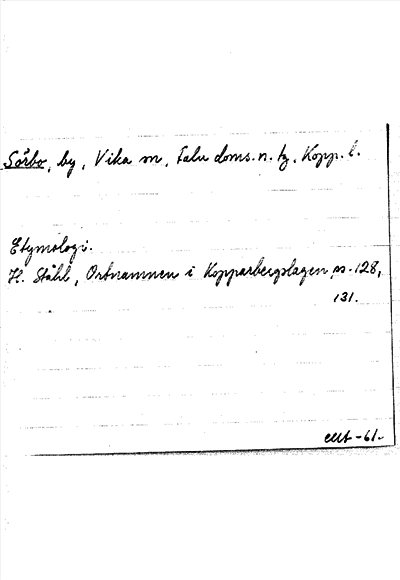 Sörbo, by, Vika sn, Falu doms. n. tg, Kopp. l.
Etymologi.
H. Ståhl, Ortnamnen i Kopparbergslagen, ss. 128,
131.
-61-